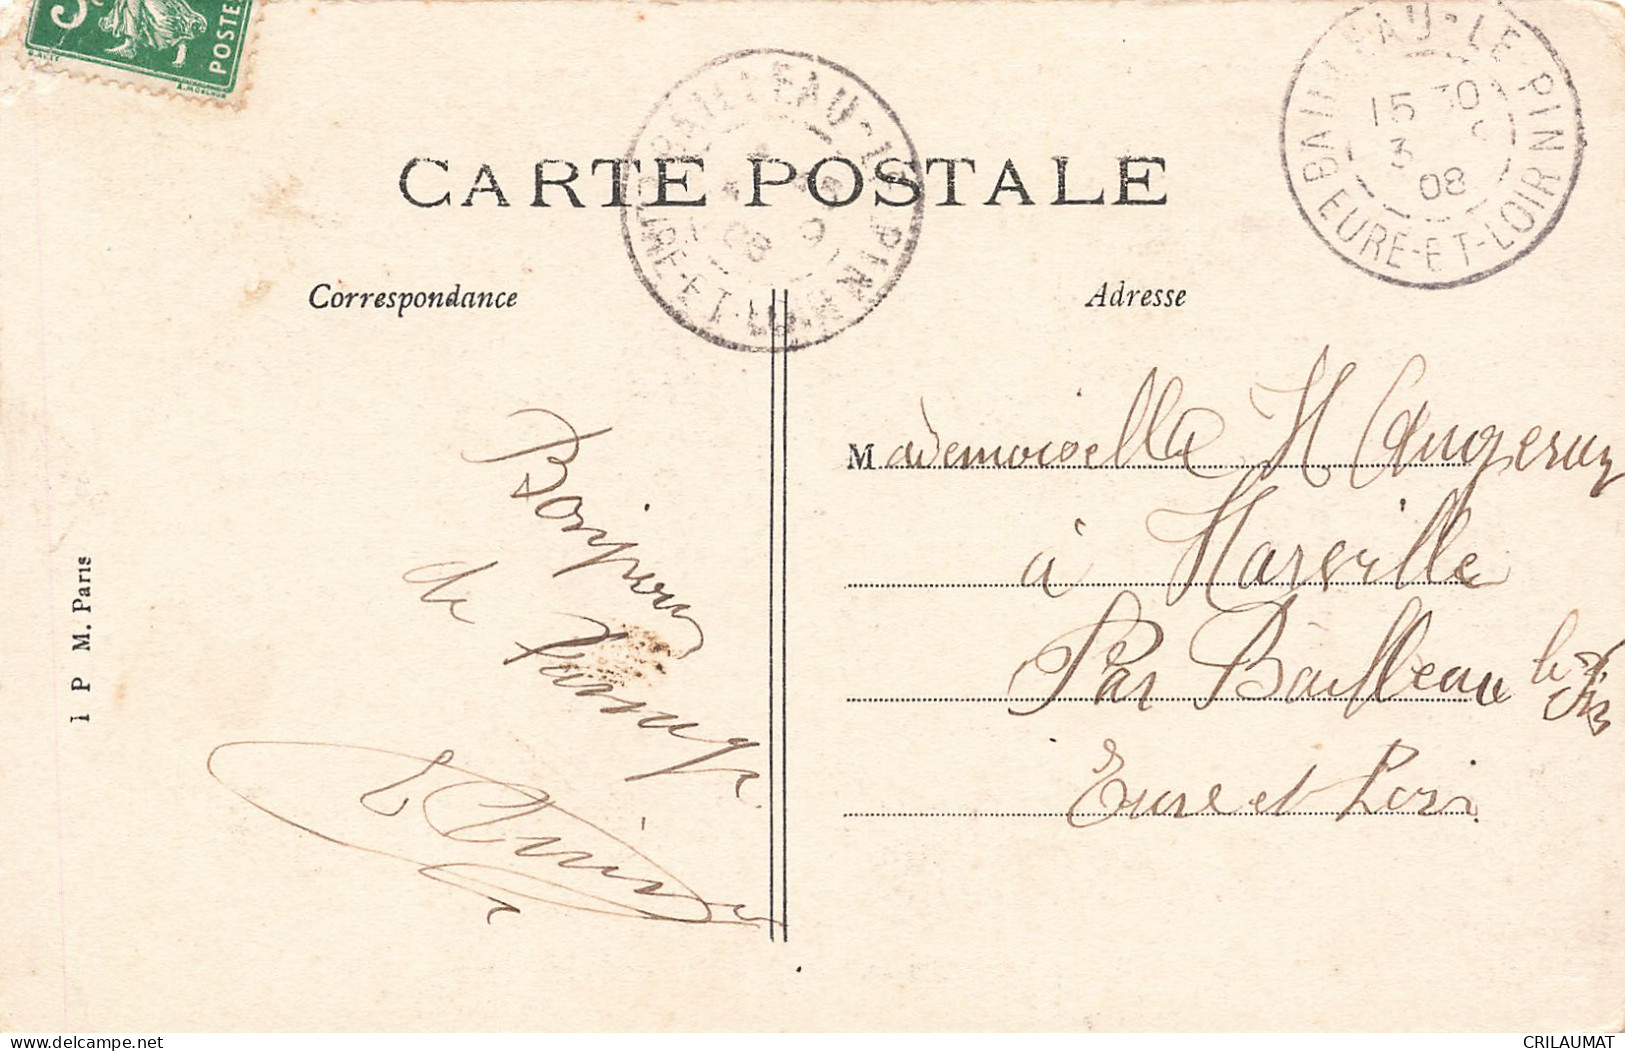 POSTE
CARTE POSTALE
BAILLEAU-LE-PIN
EURE-ET-LOIR
08
BAILLEAU-LE-PIN
15 30
3
08
EURE-ET-LOIR
Correspondance
Adresse
Bonjour
de
Mademoiselle H
à Marville
Par Bailleau le Pin
Eure et Loir
1 P M. Paris
CRILAUMAT